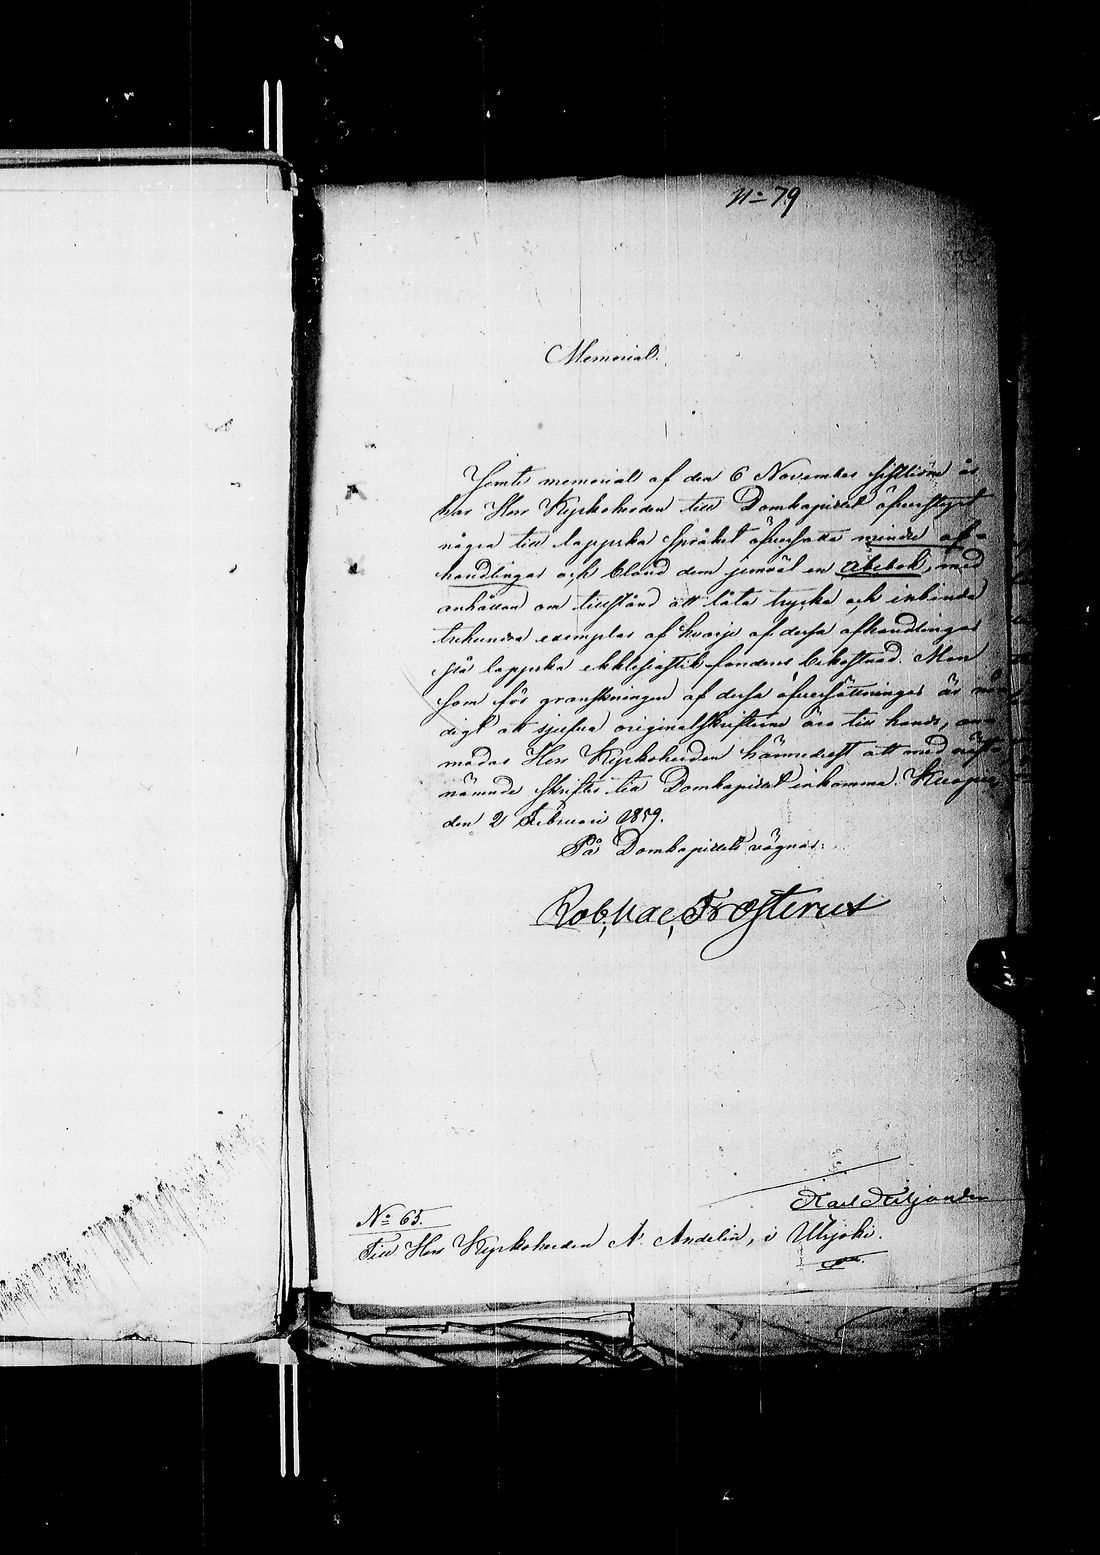 No 79
Memorial.
Jemte memorial af den 6 November sistlidne år
har Herr Kyrkoherden till Domkapitlet öfversteget
några till lappska Språket öfversatta mindre af-
handlingar och bland dem jemväl en Abcbok, med
anhållan om tillstånd att låta trycka och inbinda
trehundra exemplar af hvarje af dessa afhandlingar
på lappska ekklesiastik-fondens bekostnad. Men
som för granskningen af dessa öfversättningar är nön-
digt att sjelfva originalskrifterna äro till hands, an-
modas Herr Kyrkoherden härmedelst att med
nämnde skrifter till Domkapitlet inkomma. Kuopio,
den 2 Februari 1859.
På Domkapitlets vägnar:
Rob. Val. Frosterus
Karl Kiljander
No 65.
Till Herr Kyrkoherden A. Andelin, i Utsjoki.